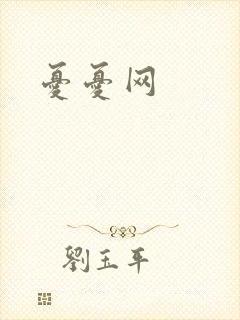 憂憂网
劉玉平